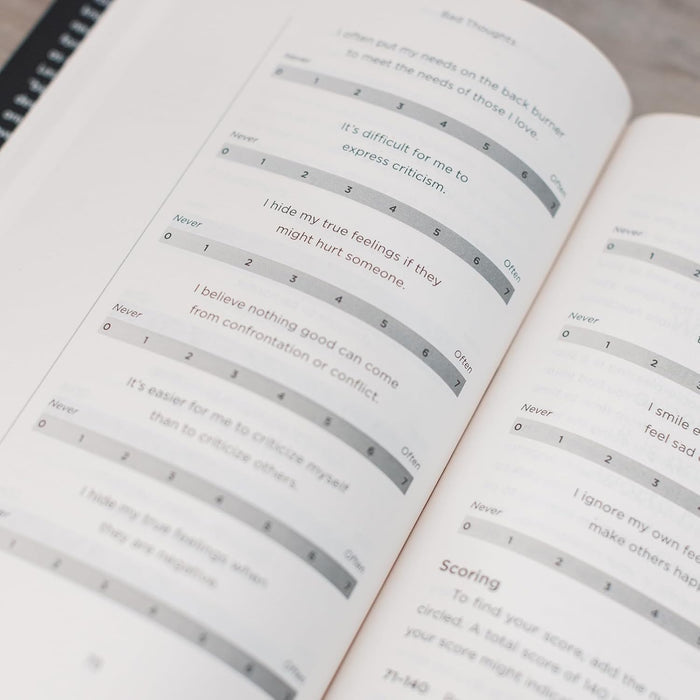 Bad Thoughts
I often put my needs on the back burner
to meet the needs of those I love.
Never
0 1 2 3 4 5 6 7
Often
It's difficult for me to
express criticism.
Never
0 1 2 3 4 5 6 7
Often
I hide my true feelings if they
might hurt someone.
Never
0 1 2 3 4 5 6 7
Often
I believe nothing good can come
from confrontation or conflict.
Never
0 1 2 3 4 5 6 7
Often
It's easier for me to criticize myself
than to criticize others.
Never
0 1 2 3 4 5 6 7
Often
I hide my true feelings when
they are negative.
1 2 3 4 5 6 7
Often
Never
0 1 2
Never
0 1 2 3
I smile e
feel sad
Never
0 1 2 3 4
I ignore my own fee
make others happ
Never
0 1 2 3 4
Scoring
To find your score, add the
circled. A total score of 140
your score might indic
71–140